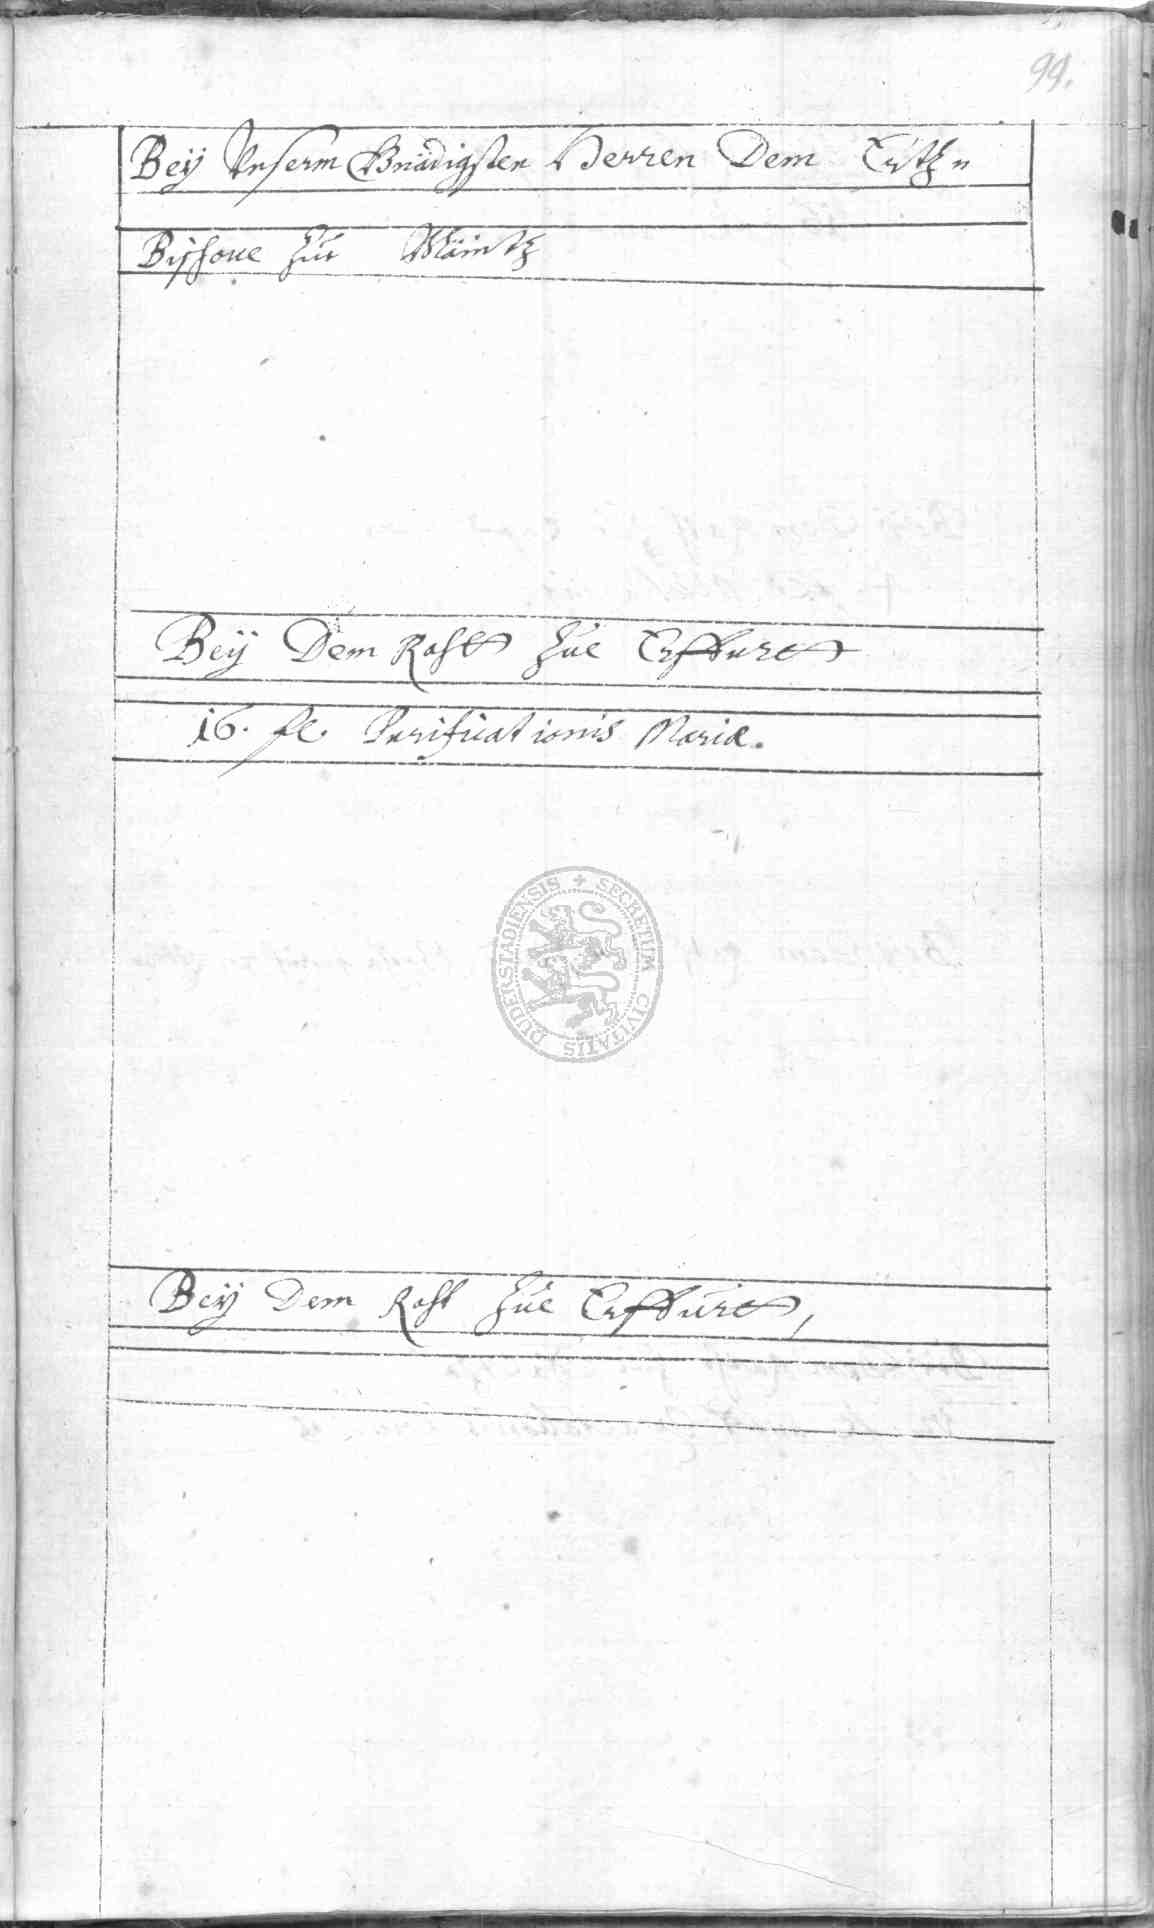 99.
Beÿ Vnserm Gnädigsten Herren Dem Ertz=
Bischoue zue Mäintz
Beÿ Dem Raht zue Erffurt
16. fl. Purificationis Mariæ.
SECRETUM CIVITATIS DUDERSTADIENSIS
Beÿ Dem Raht zue Erffurt,